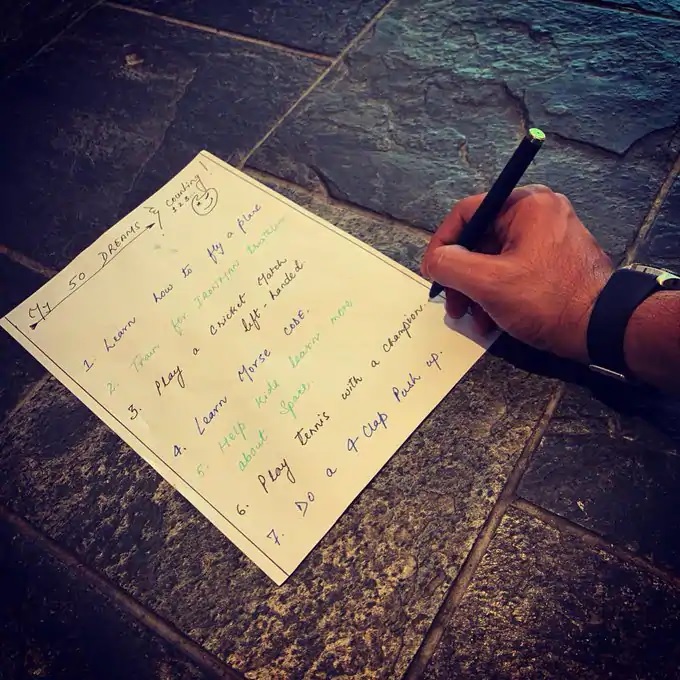 My 50 DREAMS & Counting!
1 2 3...
1. Learn how to fly a plane
2. Train for IRONMAN
3. Play a Cricket Match
left-handed.
4. Learn Morse CODE.
5. Help kids learn more
about Space.
6. Play tennis with a champion
7. Do a 4-Clap Push up.